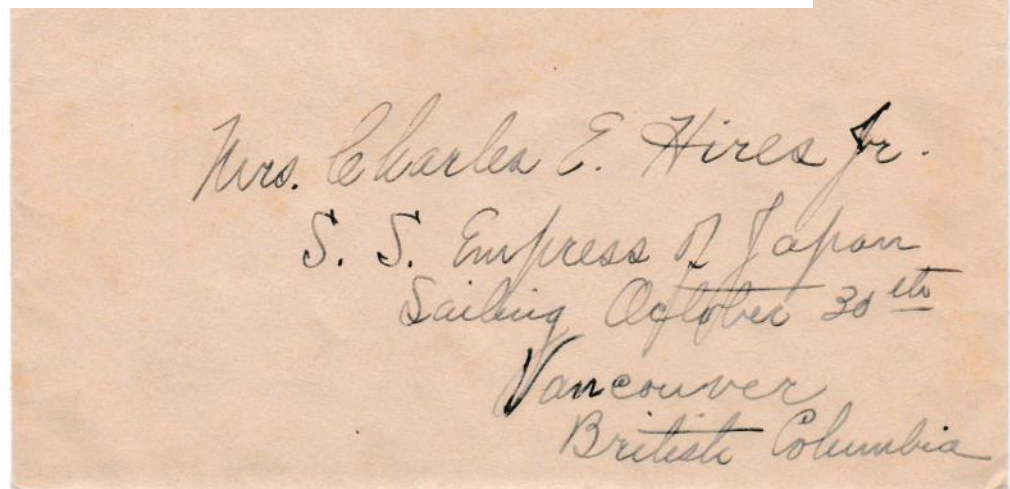 Mrs. Charles E. Hires Jr.
S. S. Empress of Japan
Sailing October 30th
Vancouver
British Columbia